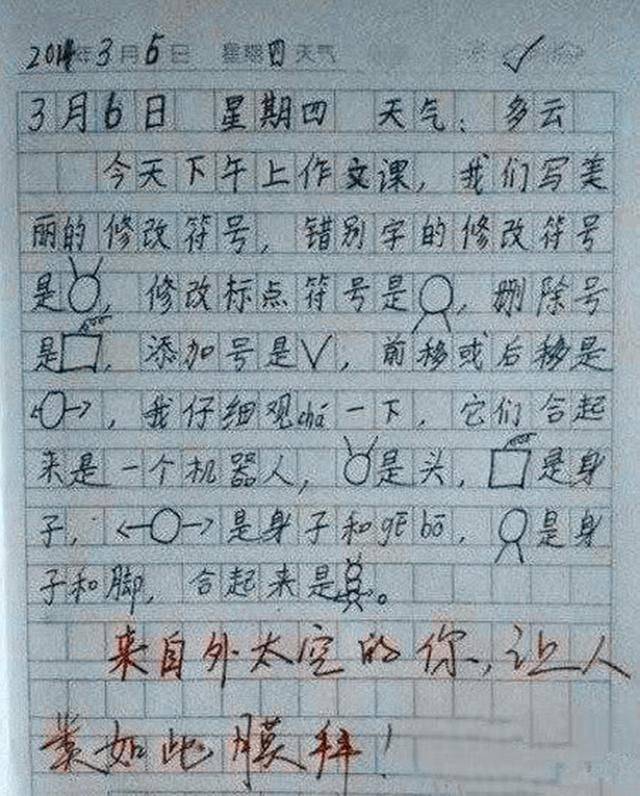 2014年3月6日 星期四 天气 ✓
3月6日 星期四 天气:多云
今天下午上作文课,我们写美
丽的修改符号,错别字的修改符号
是 ,修改标点符号是 ,删除号
是 ,添加号是∨,前移或后移是
←○→,我仔细观chá一下,它们合起
来是一个机器人, 是头, 是身
子,←○→是身子和gē bō, 是身
子和脚,合起来是 。
来自外太空的你,让人
类如此膜拜!